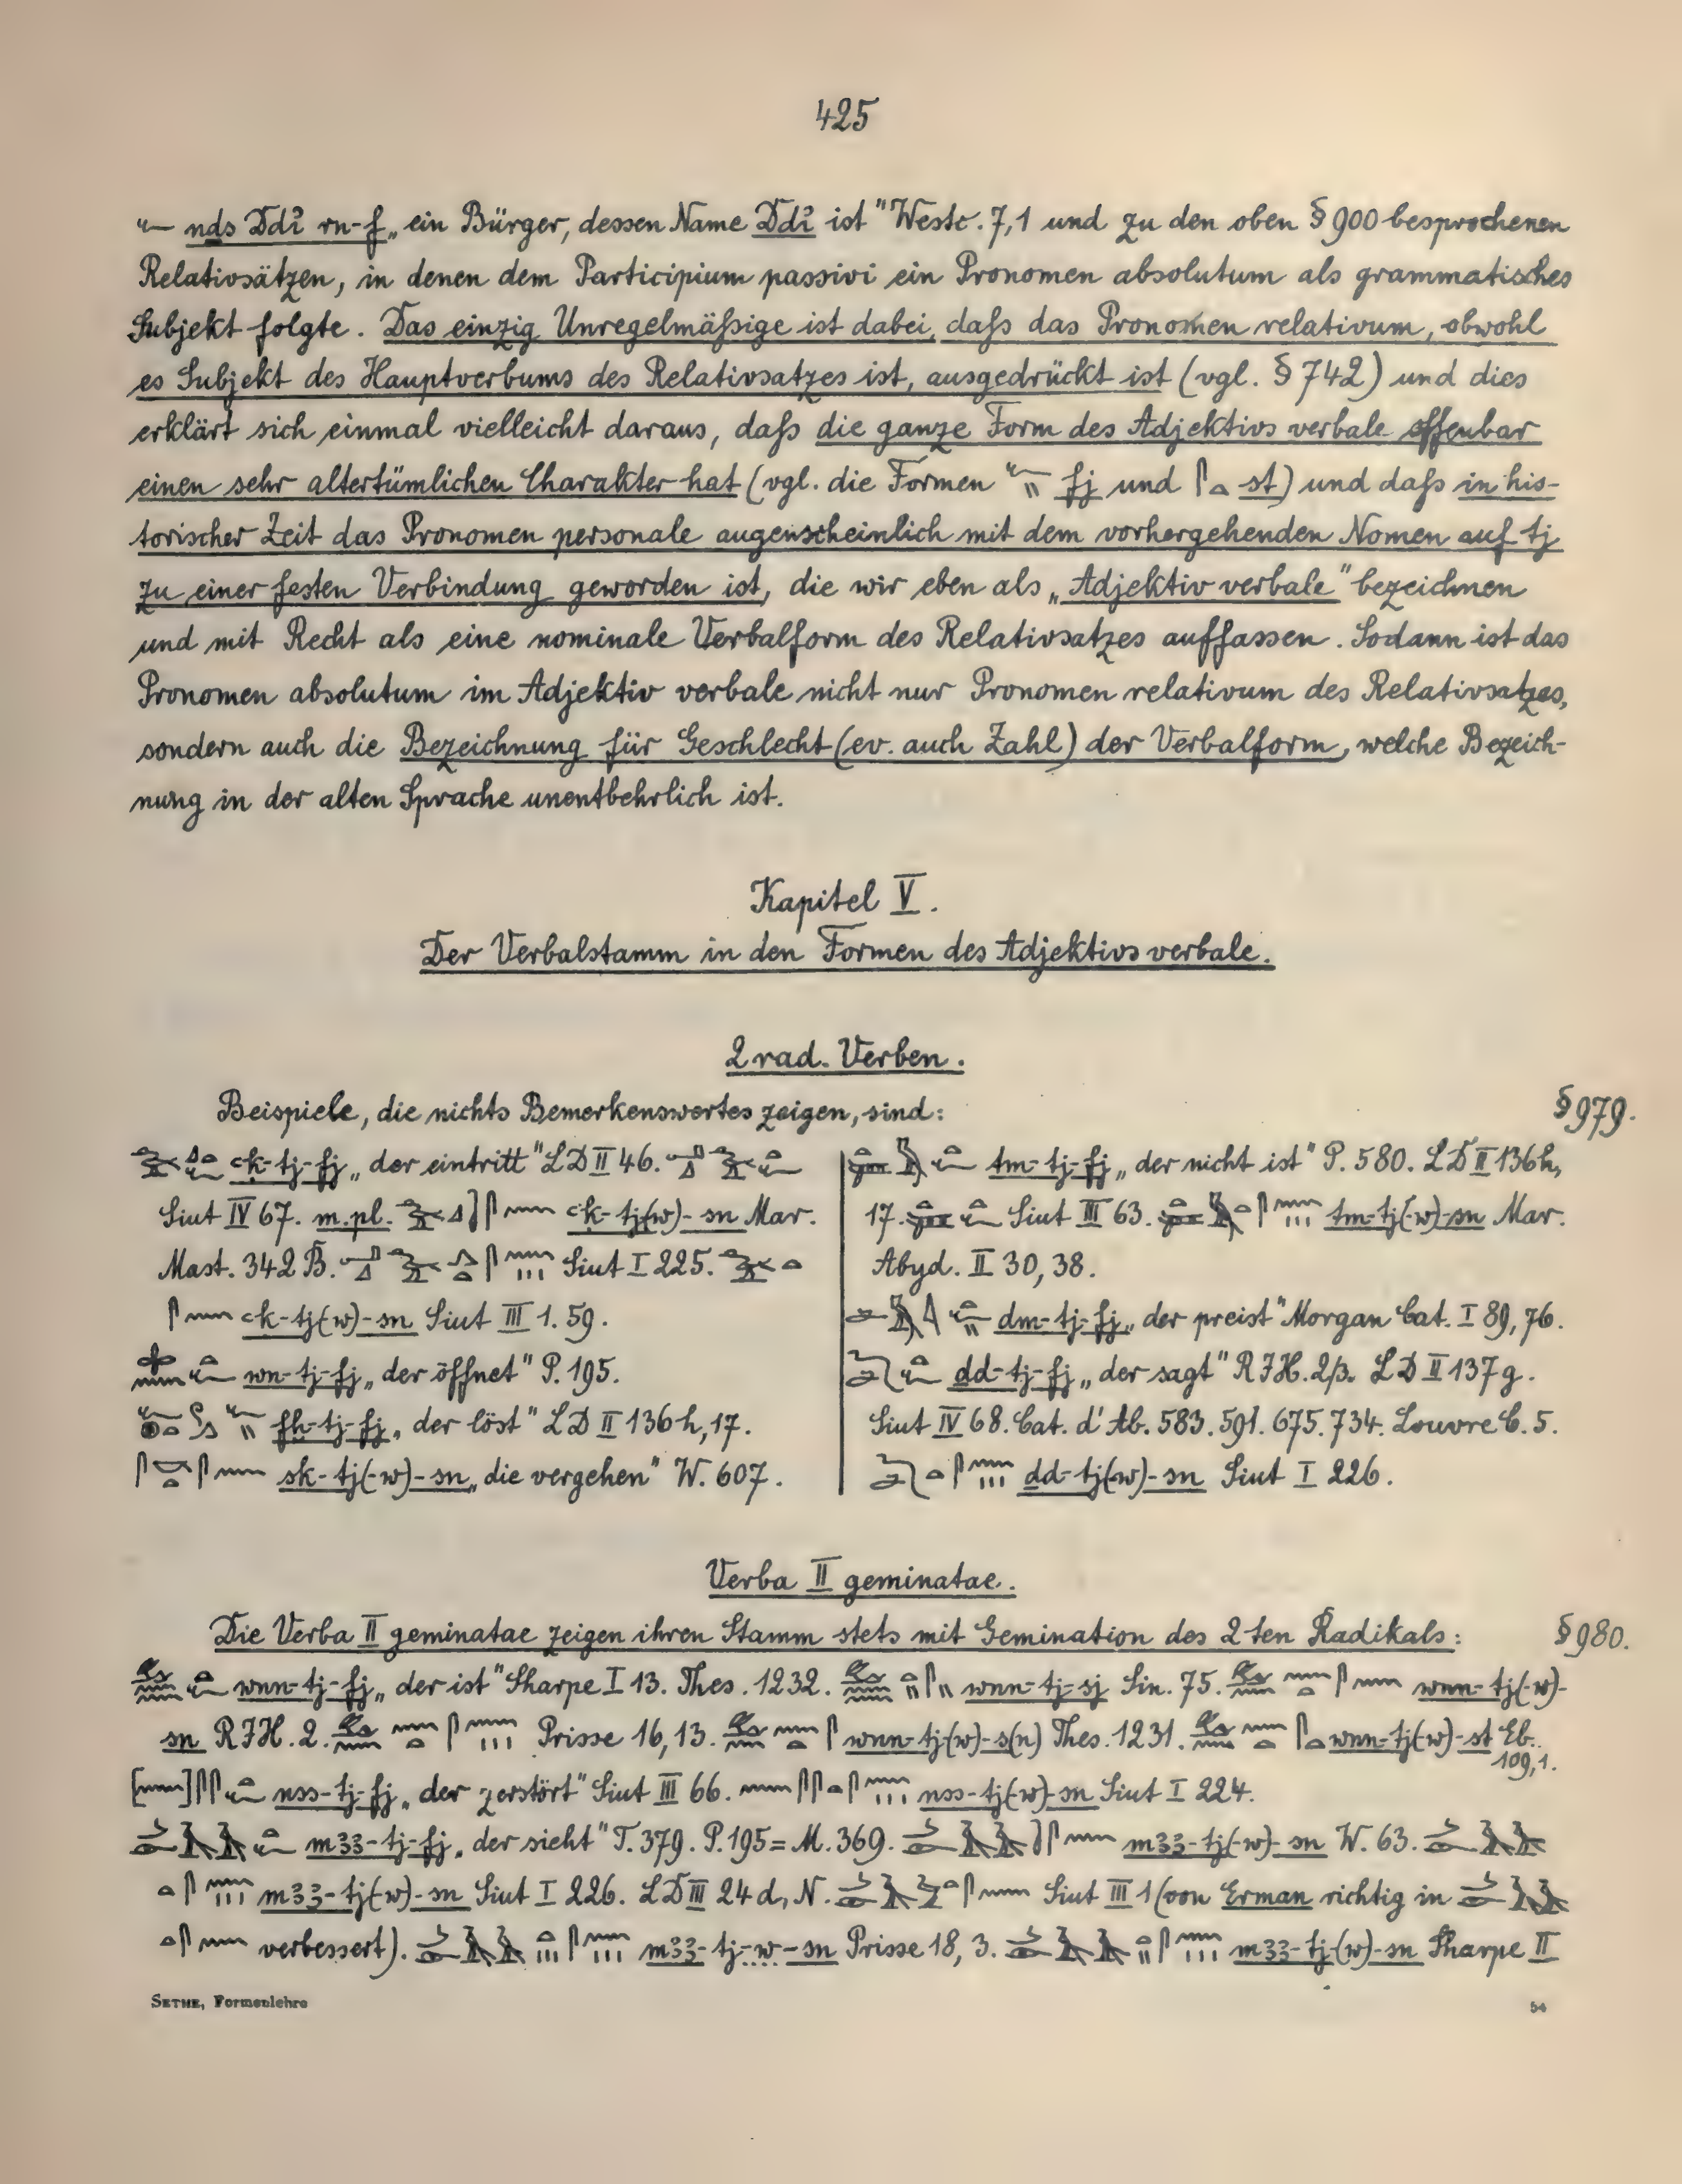 425
nds Ddj rn-f „ein Bürger, dessen Name Ddj ist" Westc. 7,1 und zu den oben § 900 besprochenen
Relativsätzen, in denen dem Participium passivi ein Pronomen absolutum als grammatisches
Subjekt folgte. Das einzig Unregelmäßige ist dabei, daß das Pronomen relativum, obwohl
es Subjekt des Hauptverbums des Relativsatzes ist, ausgedrückt ist (vgl. § 742) und dies
erklärt sich einmal vielleicht daraus, daß die ganze Form des Adjektivs verbale offenbar
einen sehr altertümlichen Charakter hat (vgl. die Formen fj und st) und daß in his-
torischer Zeit das Pronomen personale augenscheinlich mit dem vorhergehenden Nomen auf tj
zu einer festen Verbindung geworden ist, die wir eben als „Adjektiv verbale" bezeichnen
und mit Recht als eine nominale Verbalform des Relativsatzes auffassen. Sodann ist das
Pronomen absolutum im Adjektiv verbale nicht nur Pronomen relativum des Relativsatzes,
sondern auch die Bezeichnung für Geschlecht (ev. auch Zahl) der Verbalform, welche Bezeich-
nung in der alten Sprache unentbehrlich ist.
Kapitel V.
Der Verbalstamm in den Formen des Adjektivs verbale.
2 rad. Verben.
Beispiele, die nichts Bemerkenswertes zeigen, sind: § 979.
ꜥḳ-tj-fj „der eintritt" LD II 46.
Siut IV 67. m. pl. ꜥḳ-tj(w)-sn Mar.
Mast. 342 B. Siut I 225.
ꜥḳ-tj(w)-sn Siut III 1. 59.
wn-tj-fj „der öffnet" P. 195.
fḫ-tj-fj „der löst" LD II 136 h, 17.
sk-tj(-w)-sn „die vergehen" W. 607.
tm-tj-fj „der nicht ist" P. 580. LD II 136 h,
17. Siut III 63. tm-tj(-w)-sn Mar.
Abyd. II 30, 38.
dm-tj-fj „der preist" Morgan Cat. I 89, 76.
ḏd-tj-fj „der sagt" RJH. 2/3. LD II 137 g.
Siut IV 68. Cat. d'Ab. 583. 591. 675. 734. Louvre C. 5.
ḏd-tj(-w)-sn Siut I 226.
Verba II geminatae.
Die Verba II geminatae zeigen ihren Stamm stets mit Gemination des 2ten Radikals: § 980.
wnn-tj-fj „der ist" Sharpe I 13. Thes. 1232. wnn-tj-sj Sin. 75. wnn-tj(-w)-
sn RJH. 2. Prisse 16, 13. wnn-tj-(w)-s(n) Thes. 1231. wnn-tj(-w)-st Eb.
109,1.
nss-tj-fj „der zerstört" Siut III 66. nss-tj(-w)-sn Siut I 224.
mꜣꜣ-tj-fj „der sieht" T. 379. P. 195 = M. 369. mꜣꜣ-tj(-w)-sn W. 63.
mꜣꜣ-tj(-w)-sn Siut I 226. LD III 24 d, N. Siut III 1 (von Erman richtig in
verbessert). mꜣꜣ-tj-w-sn Prisse 18, 3. mꜣꜣ-tj-(w)-sn Sharpe II
SETHE, Formenlehre 54